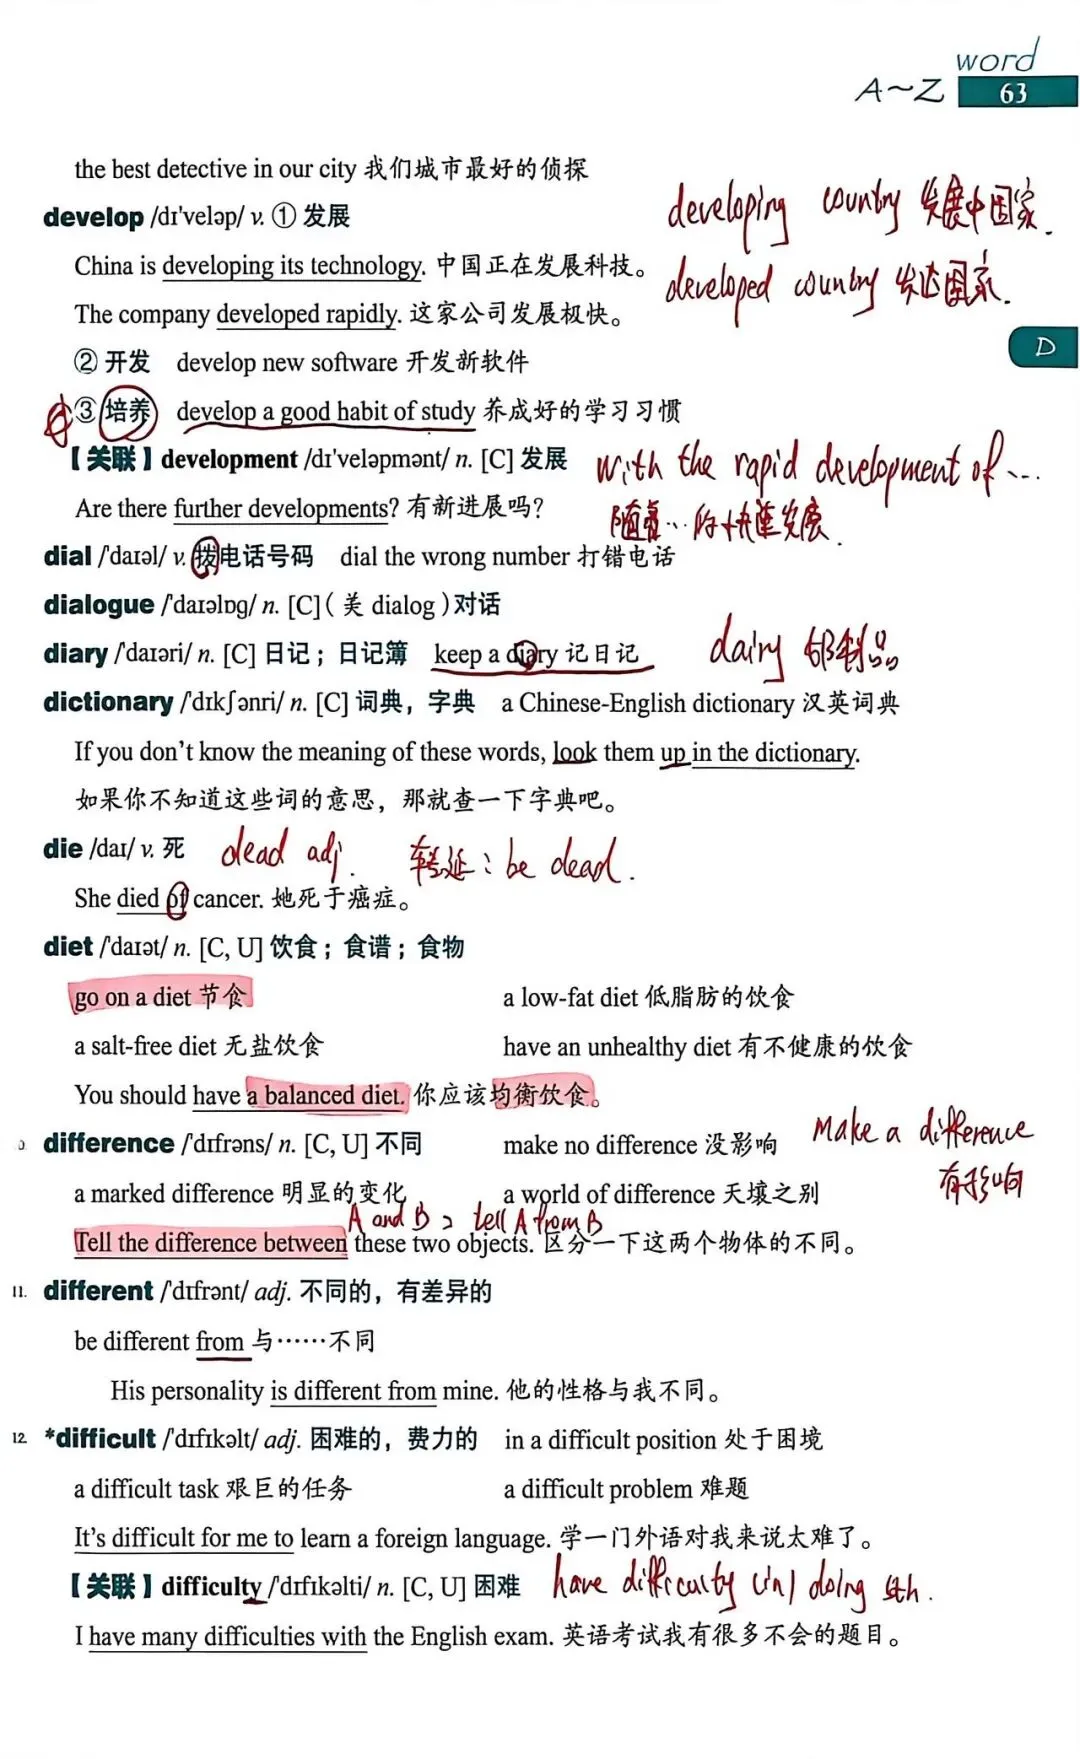 word
A~Z 63
the best detective in our city 我们城市最好的侦探
develop /dɪ'veləp/ v. ① 发展
developing country 发展中国家.
China is developing its technology. 中国正在发展科技。
developed country 发达国家.
The company developed rapidly. 这家公司发展极快。
② 开发 develop new software 开发新软件
D
③ 培养 develop a good habit of study 养成好的学习习惯
【关联】development /dɪ'veləpmənt/ n. [C] 发展
with the rapid development of ...
Are there further developments? 有新进展吗?
随着...的快速发展.
dial /'daɪəl/ v. 拨电话号码 dial the wrong number 打错电话
dialogue /'daɪəlɒɡ/ n. [C]( 美 dialog )对话
diary /'daɪəri/ n. [C] 日记；日记簿 keep a diary 记日记
dairy 奶制品
dictionary /'dɪkʃənri/ n. [C] 词典，字典 a Chinese-English dictionary 汉英词典
If you don't know the meaning of these words, look them up in the dictionary.
如果你不知道这些词的意思，那就查一下字典吧。
die /daɪ/ v. 死 dead adj. 转延：be dead.
She died of cancer. 她死于癌症。
diet /'daɪət/ n. [C, U] 饮食；食谱；食物
go on a diet 节食 a low-fat diet 低脂肪的饮食
a salt-free diet 无盐饮食 have an unhealthy diet 有不健康的饮食
You should have a balanced diet. 你应该均衡饮食。
difference /'dɪfrəns/ n. [C, U] 不同 make no difference 没影响
make a difference
有影响
a marked difference 明显的变化 a world of difference 天壤之别
A and B > tell A from B
Tell the difference between these two objects. 区分一下这两个物体的不同。
11. different /'dɪfrənt/ adj. 不同的，有差异的
be different from 与……不同
His personality is different from mine. 他的性格与我不同。
12. *difficult /'dɪfɪkəlt/ adj. 困难的，费力的 in a difficult position 处于困境
a difficult task 艰巨的任务 a difficult problem 难题
It's difficult for me to learn a foreign language. 学一门外语对我来说太难了。
【关联】difficulty /'dɪfɪkəlti/ n. [C, U] 困难 have difficulty (in) doing sth.
I have many difficulties with the English exam. 英语考试我有很多不会的题目。